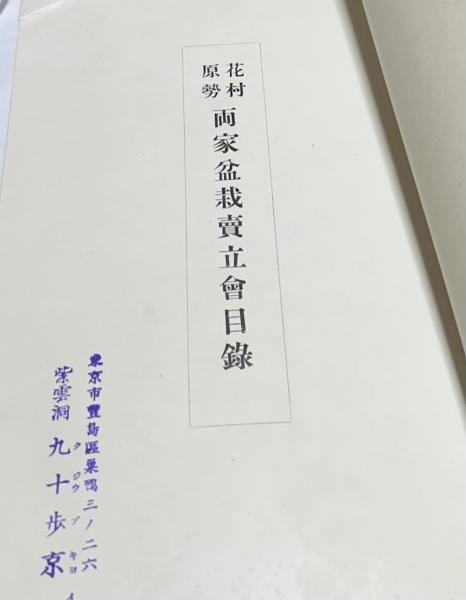 花村
原勢
両家盆栽賣立會目錄
東京市豐島區巢鴨三ノ二六
紫雲洞 九十步京
クジウブキヨ